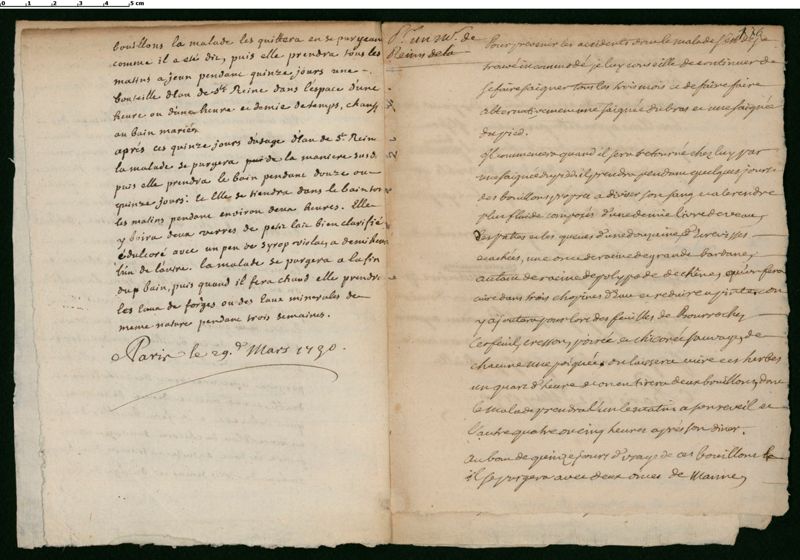 bouillons la malade les quittera en se purgeant
comme il a eté dit, puis elle prendra tous les
matins a jeun pendant quinze jours une
bouteille d'eau de Ste Reine dans l'espace d'une
heure ou d'une heure et demie de temps, chauff
au bain marien
après ces quinze jours d'usage d'eau de Ste Rein
la malade se purgera de la maniere susd.
puis elle prendra le bain pendant douze ou
quinze jours. Elle se tiendra dans le bain tous
les matins pendant environ deux heures. Elle
y boira deux verres de petit lait bien clarifié
édulcoré avec un peu de syrop violat, a demi heure
l'un de l'autre. la malade se purgera a la fin
du bain, puis quand il fera chaud elle prendra
les eaux de forges ou des eaux minerales de
meme nature pendant trois semaines.
a Paris le 29.e Mars 1730.
Pr. un Mr. de
Reims
Pour prevenir les accidents dont le malade s'est
trouvé incommodé je luy conseille de continuer de
se faire saigner tous les trois mois et de faire faire
alternativement une saignée du bras et une saignée
du pied.
Il commencera quand il sera retourné chez luy par
une saignée du pied il prendra pendant quelques jours
des bouillons propres a diviser son sang et a le rendre
plus fluide composés d'une demie livre de veau,
les pattes et les queues d'une douzaine d'Ecrevisses
ecachées, une once de racine de grande bardane,
autant de racine de polypode de chêne, qu'on fera
cuire dans trois chopines d'eau et reduire a pinte on
y ajoutera pour lors des feuilles de Bourroche,
Cerfeuil, cresson, poirée et chicorée sauvage, de
chacune une poignée. on laissera cuire ces herbes
un quart d'heure et on en tirera deux bouillons, dont
le malade prendra l'un le matin a son reveil et
l'autre quatre ou cinq heures apres son diner.
au bout de quinze jours d'usage de ces bouillons
il se purgera avec deux onces de Manne,